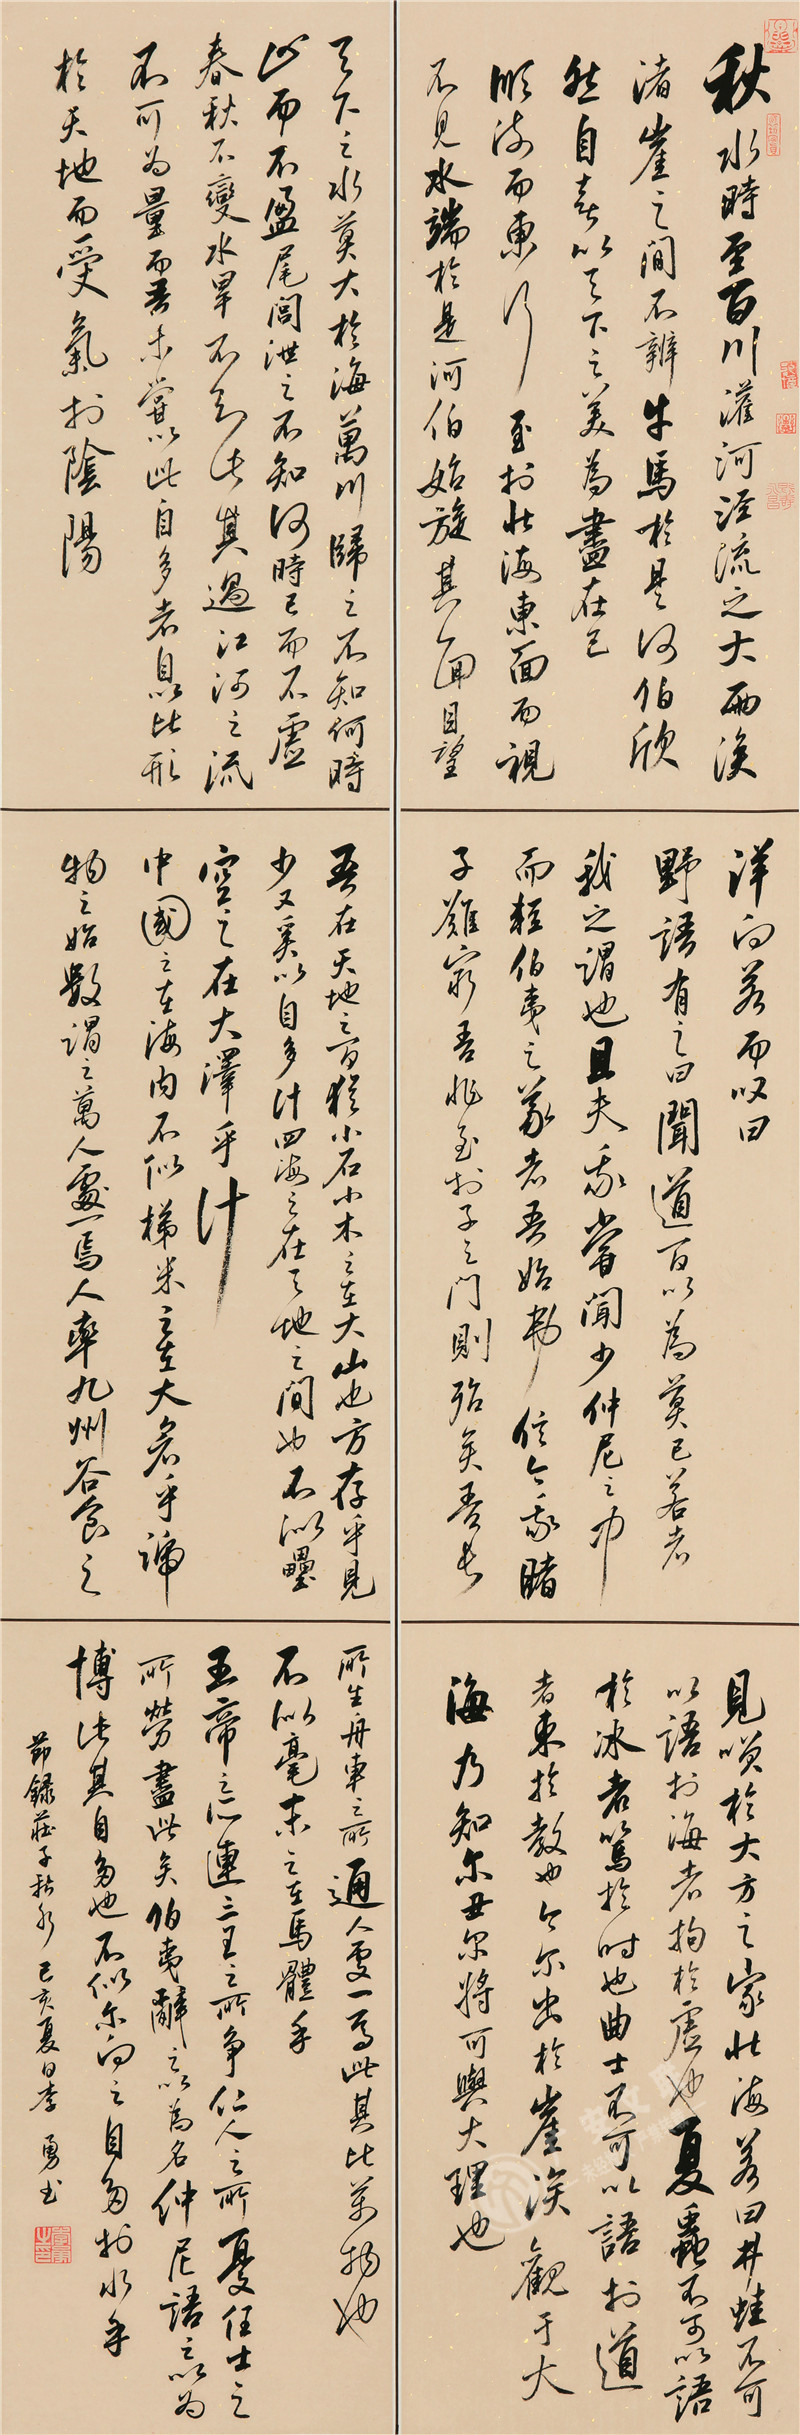 秋水時至百川灌河涇流之大兩涘
渚崖之間不辨牛馬於是河伯欣
然自喜以天下之美為盡在己
順流而東行至於北海東面而視
不見水端於是河伯始旋其面目望
洋向若而叹曰
野語有之曰聞道百以為莫己若者
我之謂也且夫我嘗聞少仲尼之
而輕伯夷之義者吾始弗信今我睹
子難窮吾非至於子之門則殆矣吾長
見笑於大方之家北海若曰井蛙不可
以語於海者拘於虛也夏蟲不可以語
於冰者篤於时也曲士不可以語於道
者束於教也今尔出於崖涘觀于大
海乃知尔丑尔將可與大理也
天下之水莫大於海萬川歸之不知何時
止而不盈尾閭泄之不知何時已而不虛
春秋不變水旱不知此其過江河之流
不可為量而吾未嘗以此自多者自以比形
於天地而受氣於陰陽
吾在天地之间猶小石小木之在大山也方存乎見
少又奚以自多计四海之在天地之間也不似礨
空之在大澤乎计
中國之在海内不似稊米之在大倉乎號
物之始數謂之萬人處一焉人率九州谷食之
所生舟車之所通人處一焉此其比萬物也
不似毫末之在馬體乎
五帝之所連三王之所争仁人之所憂任士之
所勞盡此矣伯夷辭之以為名仲尼語之以为
博此其自多也不似尔向之自多於水乎
節録莊子秋水己亥夏日李勇书